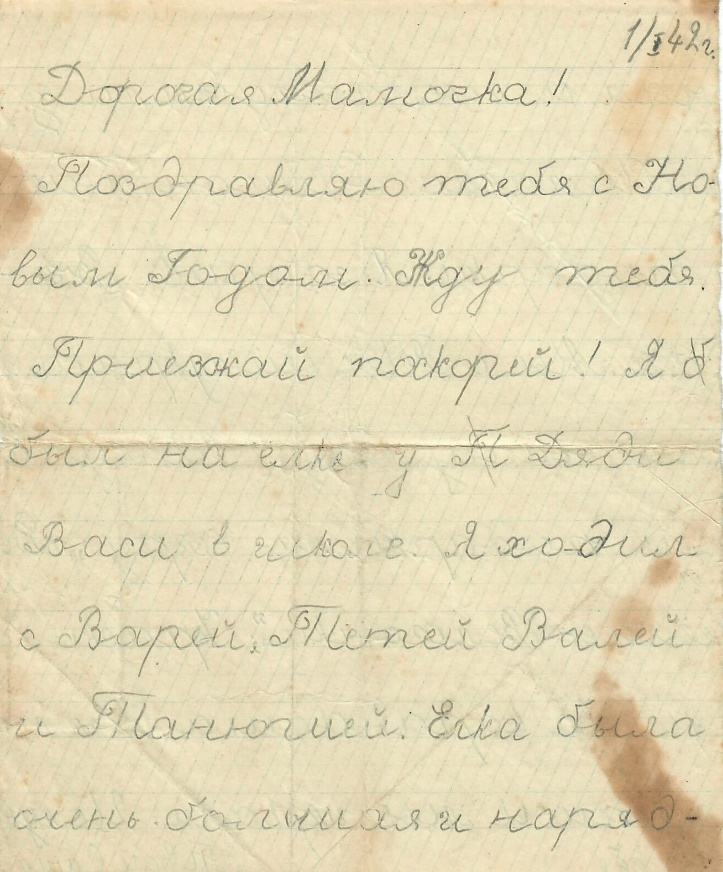 1/I 42 г.
Дорогая Мамочка!
Поздравляю тебя с Но-
вым Годом. Жду тебя.
Приезжай поскорей! Я б
был на елке у П Дяди
Васи в школе. Я ходил
с Варей, Тётей Валей
и Танюшей. Елка была
очень большая и наряд-